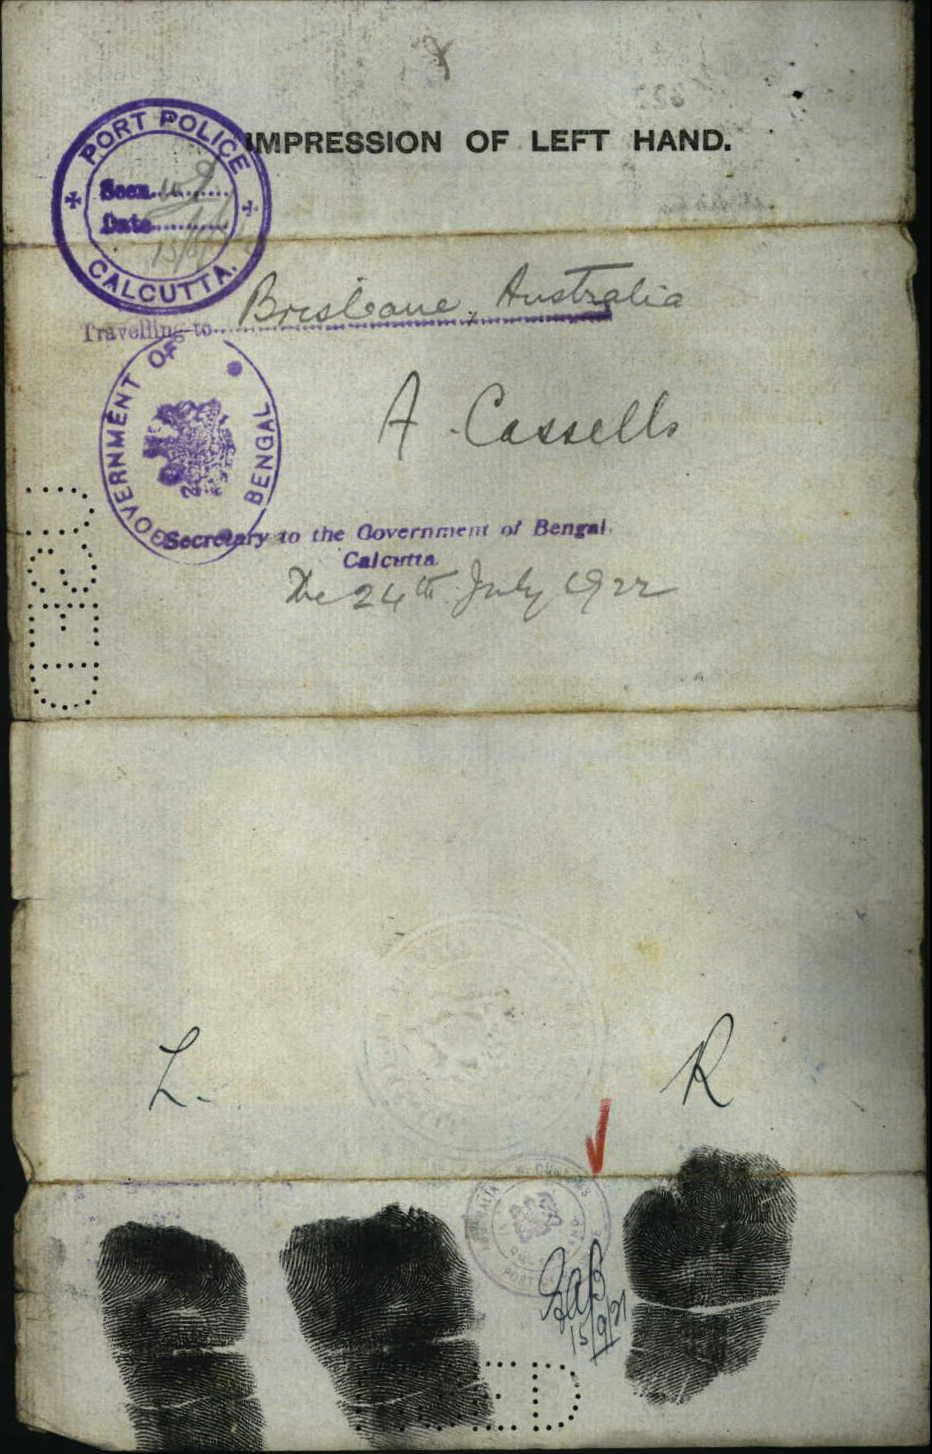 IMPRESSION OF LEFT HAND.
PORT POLICE
Seen
Date
CALCUTTA.
Travelling to Brisbane, Australia
GOVERNMENT OF BENGAL
A. Cassells
Secretary to the Government of Bengal.
Calcutta
The 24th July 1922
L.
R
15/9/21